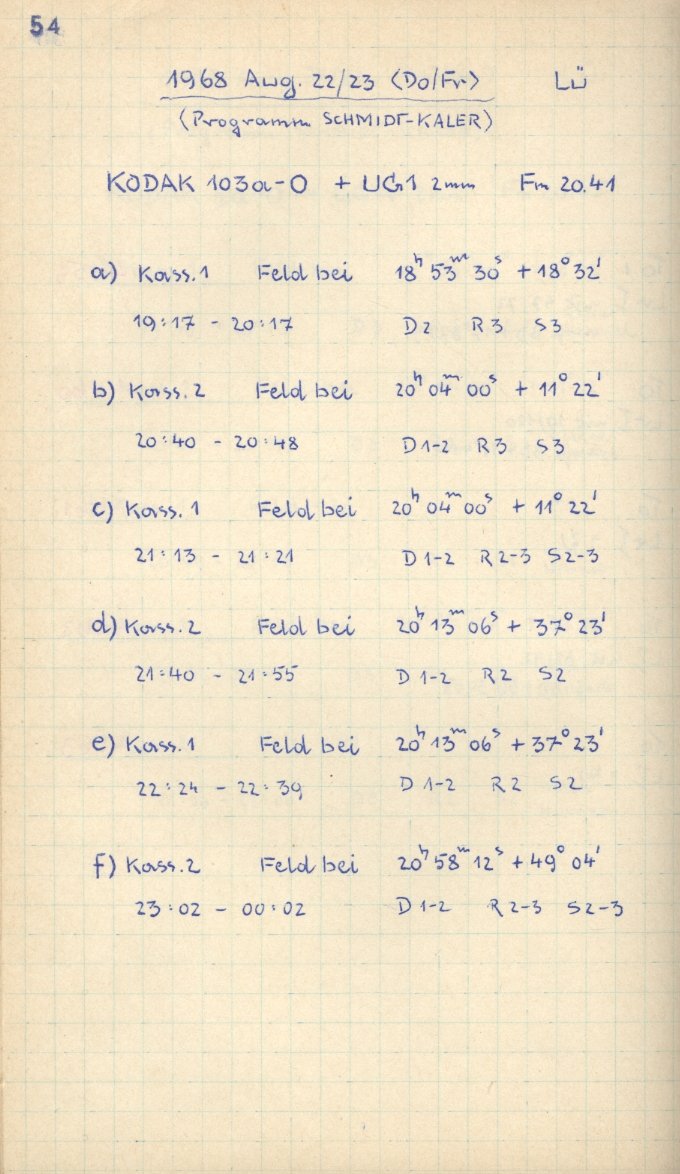 54
1968 Aug. 22/23 (Do/Fr) LÜ
(Programm SCHMIDT-KALER)
KODAK 103a-O + UG1 2mm Fm 20.41
a) Kass. 1 Feld bei 18ʰ 53ᵐ 30ˢ + 18° 32'
19:17 - 20:17 D2 R3 S3
b) Kass. 2 Feld bei 20ʰ 04ᵐ 00ˢ + 11° 22'
20:40 - 20:48 D1-2 R3 S3
c) Kass. 1 Feld bei 20ʰ 04ᵐ 00ˢ + 11° 22'
21:13 - 21:21 D1-2 R2-3 S2-3
d) Kass. 2 Feld bei 20ʰ 13ᵐ 06ˢ + 37° 23'
21:40 - 21:55 D1-2 R2 S2
e) Kass. 1 Feld bei 20ʰ 13ᵐ 06ˢ + 37° 23'
22:24 - 22:39 D1-2 R2 S2
f) Kass. 2 Feld bei 20ʰ 58ᵐ 12ˢ + 49° 04'
23:02 - 00:02 D1-2 R2-3 S2-3